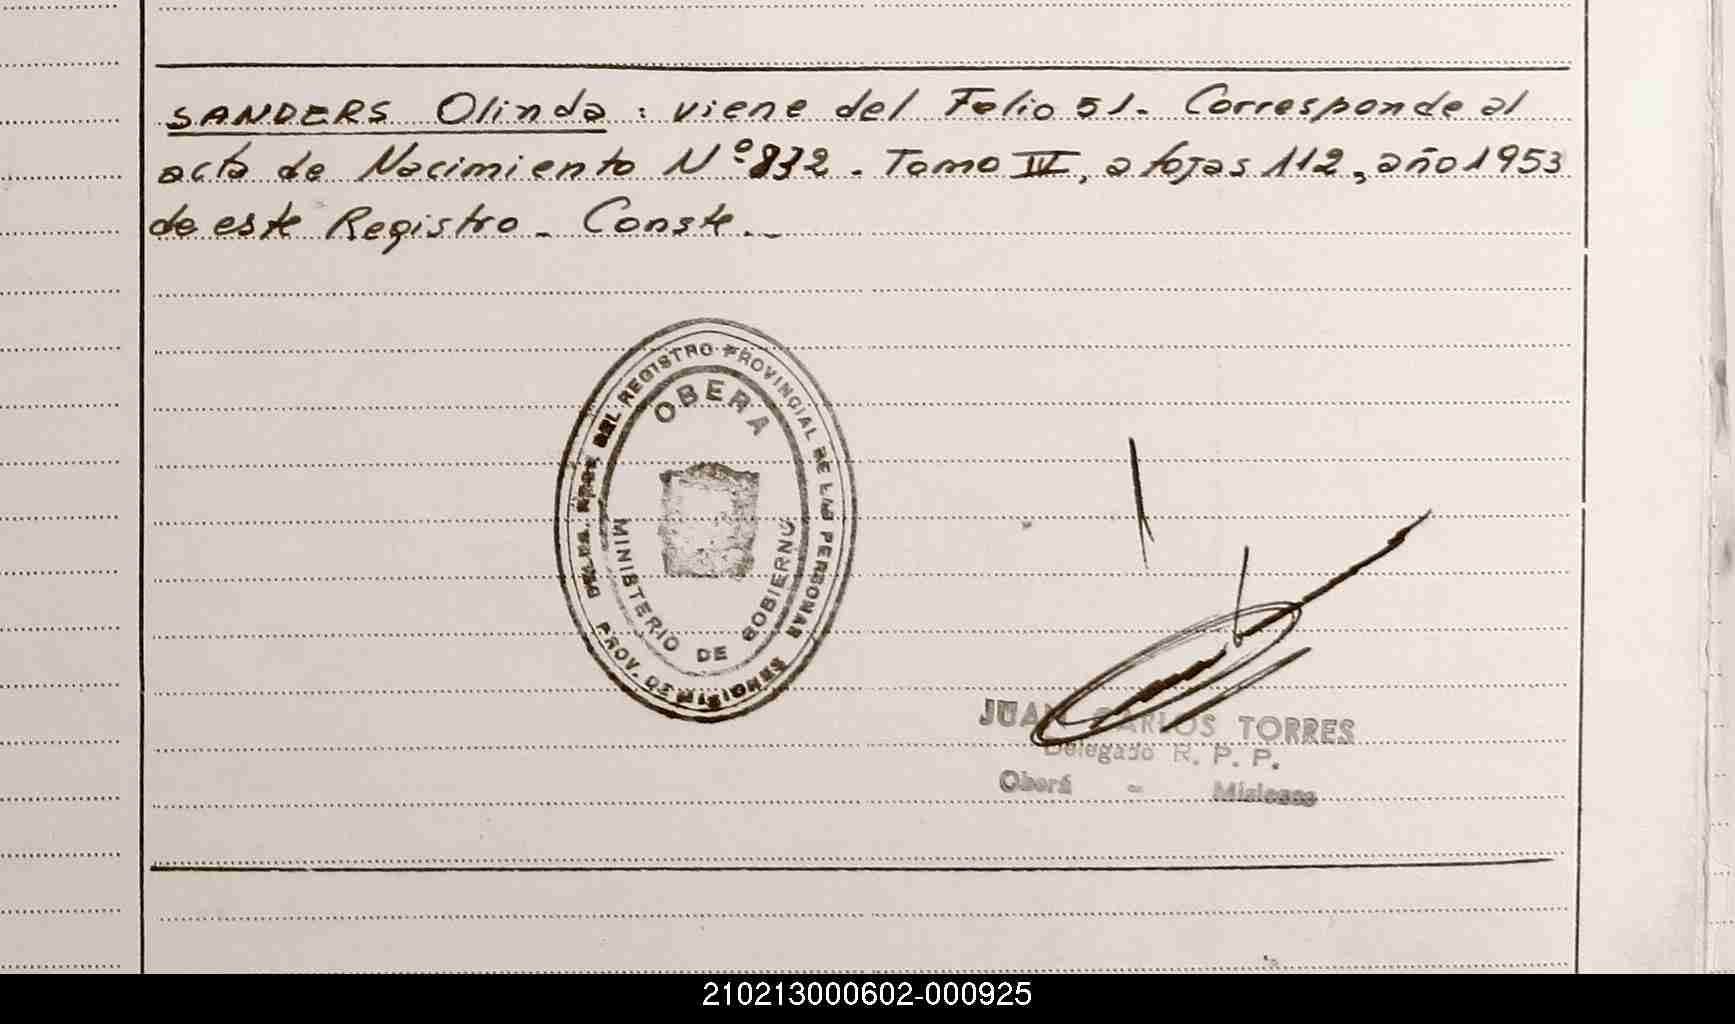 SANDERS Olinda : viene del Folio 51. Corresponde al
acta de Nacimiento Nº 832. Tomo IV, a fojas 112, año 1953
de este Registro - Conste._
DEL REGISTRO PROVINCIAL DE LAS PERSONAS
OBERA
MINISTERIO DE GOBIERNO
PROV. DE MISIONES
JUAN CARLOS TORRES
Delegado R. P. P.
Oberá - Misiones
210213000602-000925